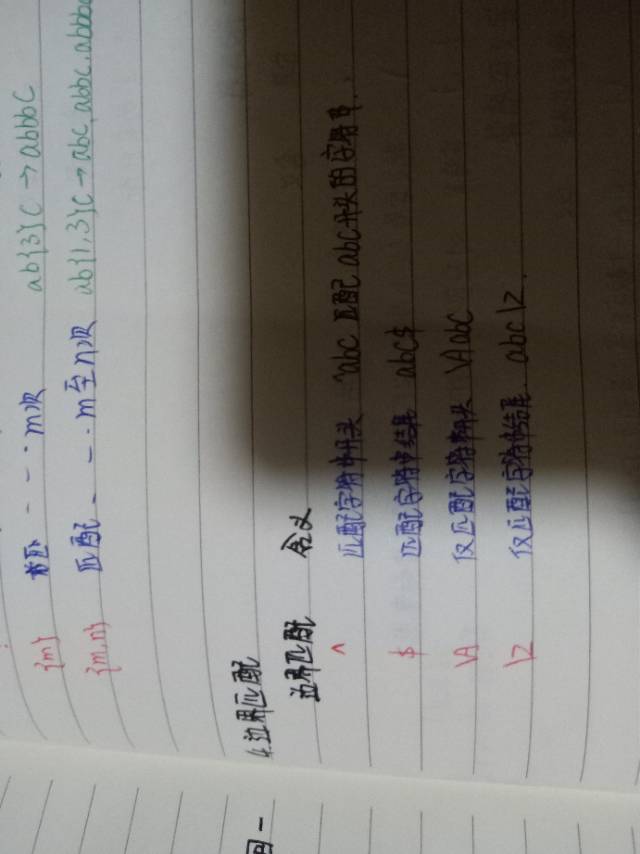 {m} 匹 - - · m次 ab{3}c → abbbc
{m,n} 匹配 - - · m至n次 ab{1,3}c → abc, abbc, abbbc
4.边界匹配
边界匹配 含义
^ 匹配字符串开头 ^abc 匹配 abc开头的字符串.
$ 匹配字符串结尾 abc$
\A 仅匹配字符串开头 \Aabc
\Z 仅匹配字符串结尾. abc\Z.